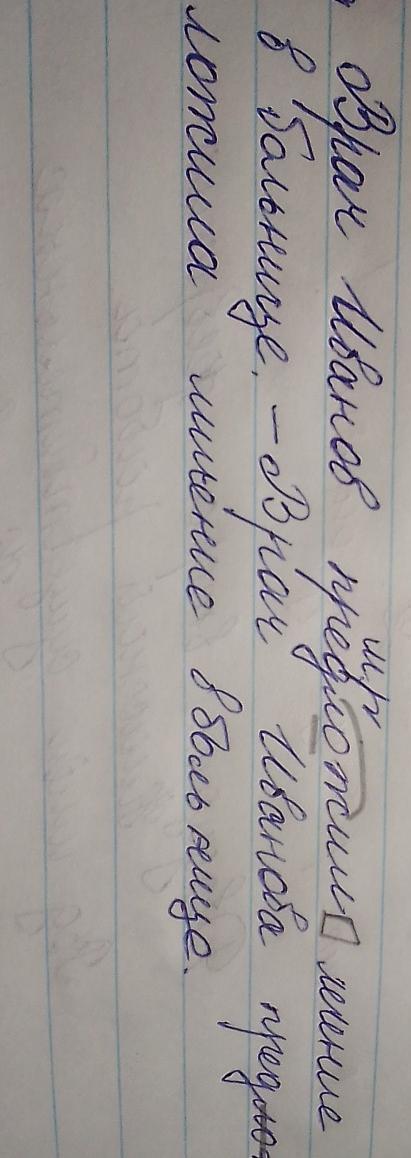 м р
Врач Иванов предложил лечение
в больнице. – Врач Иванова предло-
ложила лечение в больнице.